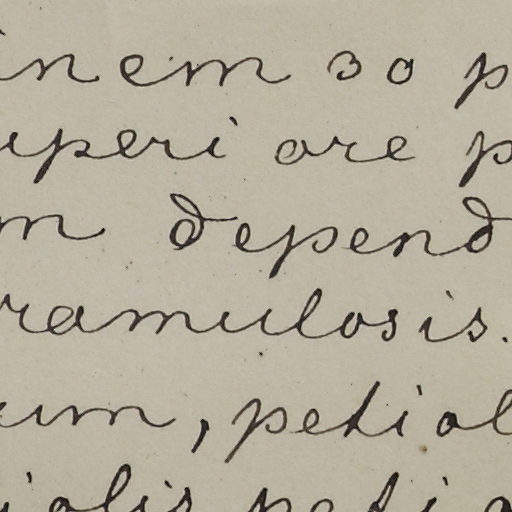 inem so p
uperiore p
m depend
ramulosis.
um, petiol
iolis peti